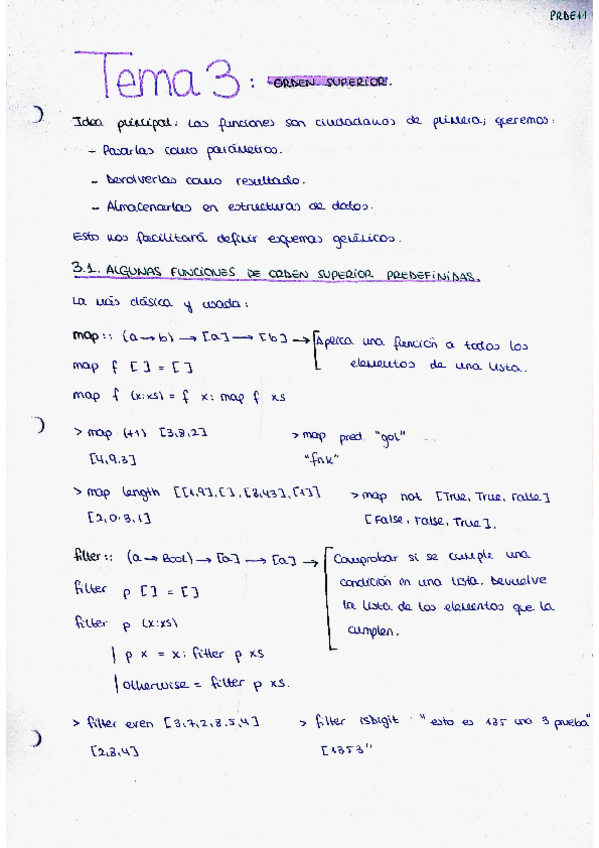 PRDE11
Tema 3: ORDEN SUPERIOR.
Idea principal: Las funciones son ciudadanos de primera; queremos:
- Pasarlas como parámetros.
- Devolverlas como resultado.
- Almacenarlas en estructuras de datos.
Esto nos facilitará definir esquemas genéricos.
3.1. ALGUNAS FUNCIONES DE ORDEN SUPERIOR PREDEFINIDAS.
La más clásica y usada:
map:: (a→b) → [a] → [b] → Aplica una función a todos los
map f [] = [] elementos de una lista.
map f (x:xs) = f x: map f xs
> map (+1) [3,8,2] > map pred "gol"
[4,9,3] "fnk"
> map length [[1,9],[],[8,43],[1]] > map not [True, True, False]
[2,0,3,1] [False, False, True].
filter:: (a→Bool) → [a] → [a] → Comprobar si se cumple una
filter p [] = [] condición en una lista. Devuelve
filter p (x:xs) la lista de los elementos que la
| p x = x: filter p xs cumplen.
| otherwise = filter p xs.
> filter even [3,7,2,8,5,4] > filter isDigit "esto es 135 una 3 prueba"
[2,8,4] [1353"